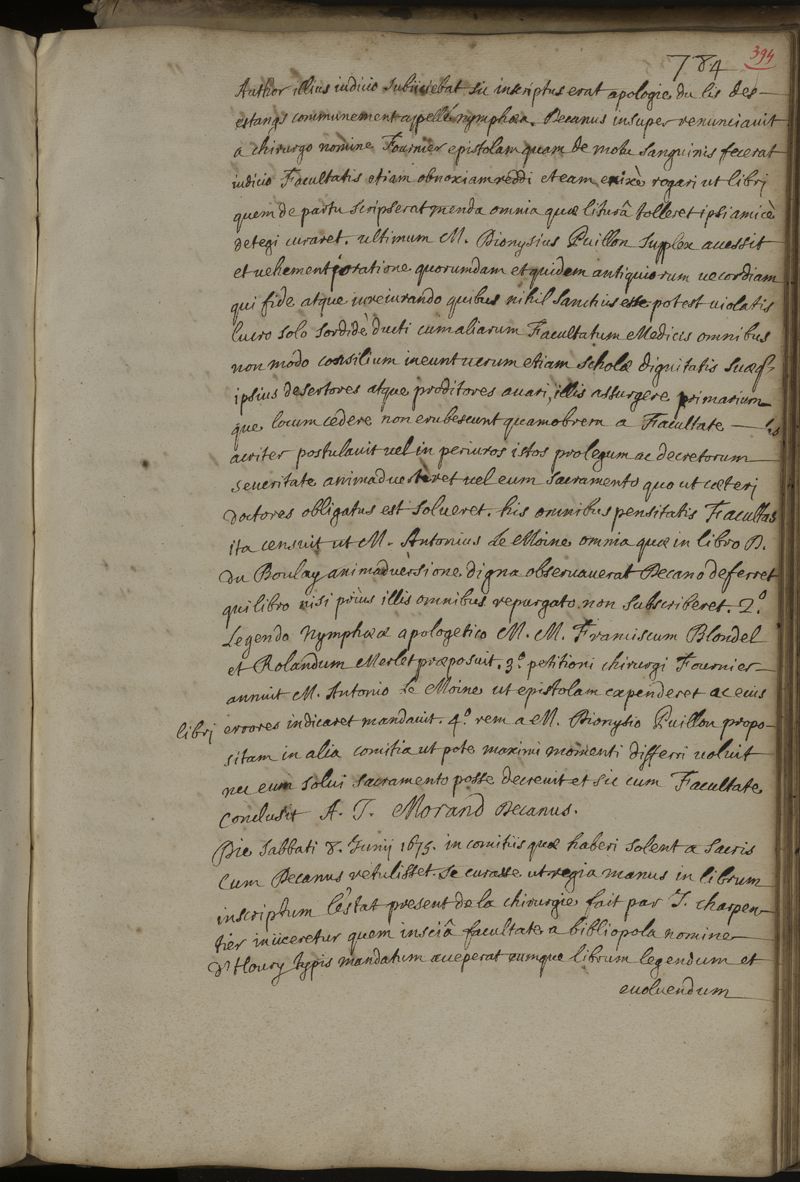 784
394
Author illius iudicio subiiciebat sic inscriptus erat apologie du lis des
estangs communement appellé nymphæa. Decanus insuper renunciavit
a chirurgo nomine Fournier epistolam quam de motu sanguinis fecerat
iudicio Facultatis etiam obnoxiam reddi et eam enixè rogari ut librj
quem de partu scripserat menda omnia quæ liturâ tolleret ipsi amicè
detegi curaret. ultimum M. Dionysius Puillon supplex accessit
et vehementi oratione quorumdam et quidem antiquiorum vecordiam
qui fide atque iureiurando quibus nihil sanctius esse potest violatis
lucro solo sordidè ducti cum aliarum Facultatum Medicis omnibus
non modo consilium ineunt verum etiam scholæ dignitatis suæq3
ipsius desertores atque proditores avari, illis assurgere primarium
que locum cedere non erubescunt quamobrem a Facultate
acriter postulavit vel in periuros istos pro legum ac decretorum
severitate animadverteret vel eum sacramento quo ut cæterj
doctores obligatus est solveret. his omnibus pensitatis Facultas
ita censuit ut M. Antonius Le Moine omnia quæ in libro D.
Du Boulay animadversione digna observaverat Decano deferret
qui libro nisi priùs illis omnibus repurgato non subscriberet. 2.º
Legendo Nymphææ apologetico M. M. Franciscum Blondel
et Rolandum Merlet præposuit. 3.º petitioni chirurgi Fournier
annuit M. Antonio Le Moine ut epistolam expenderet ac eius
librj errores indicaret mandavit. 4.º rem a M. Dionysio Puillon propo-
sitam in alia comitia ut pote maximi momenti differri voluit
nec eum solvi sacramento posse decrevit et sic cum Facultate
conclusit A. J. Morand Decanus.
Die Sabbati 8. Junij 1675. in comitiis quæ haberi solent a sacris
Cum Decanus retulisset se curasse ut regia manus in librum
inscriptum l'estat present de la chirurgie fait par J. charpen-
tier iniiceretur quem insciâ facultate a bibliopola nomine
d'Houry typis mandatum acceperat eumque librum legendum et
evoluendum